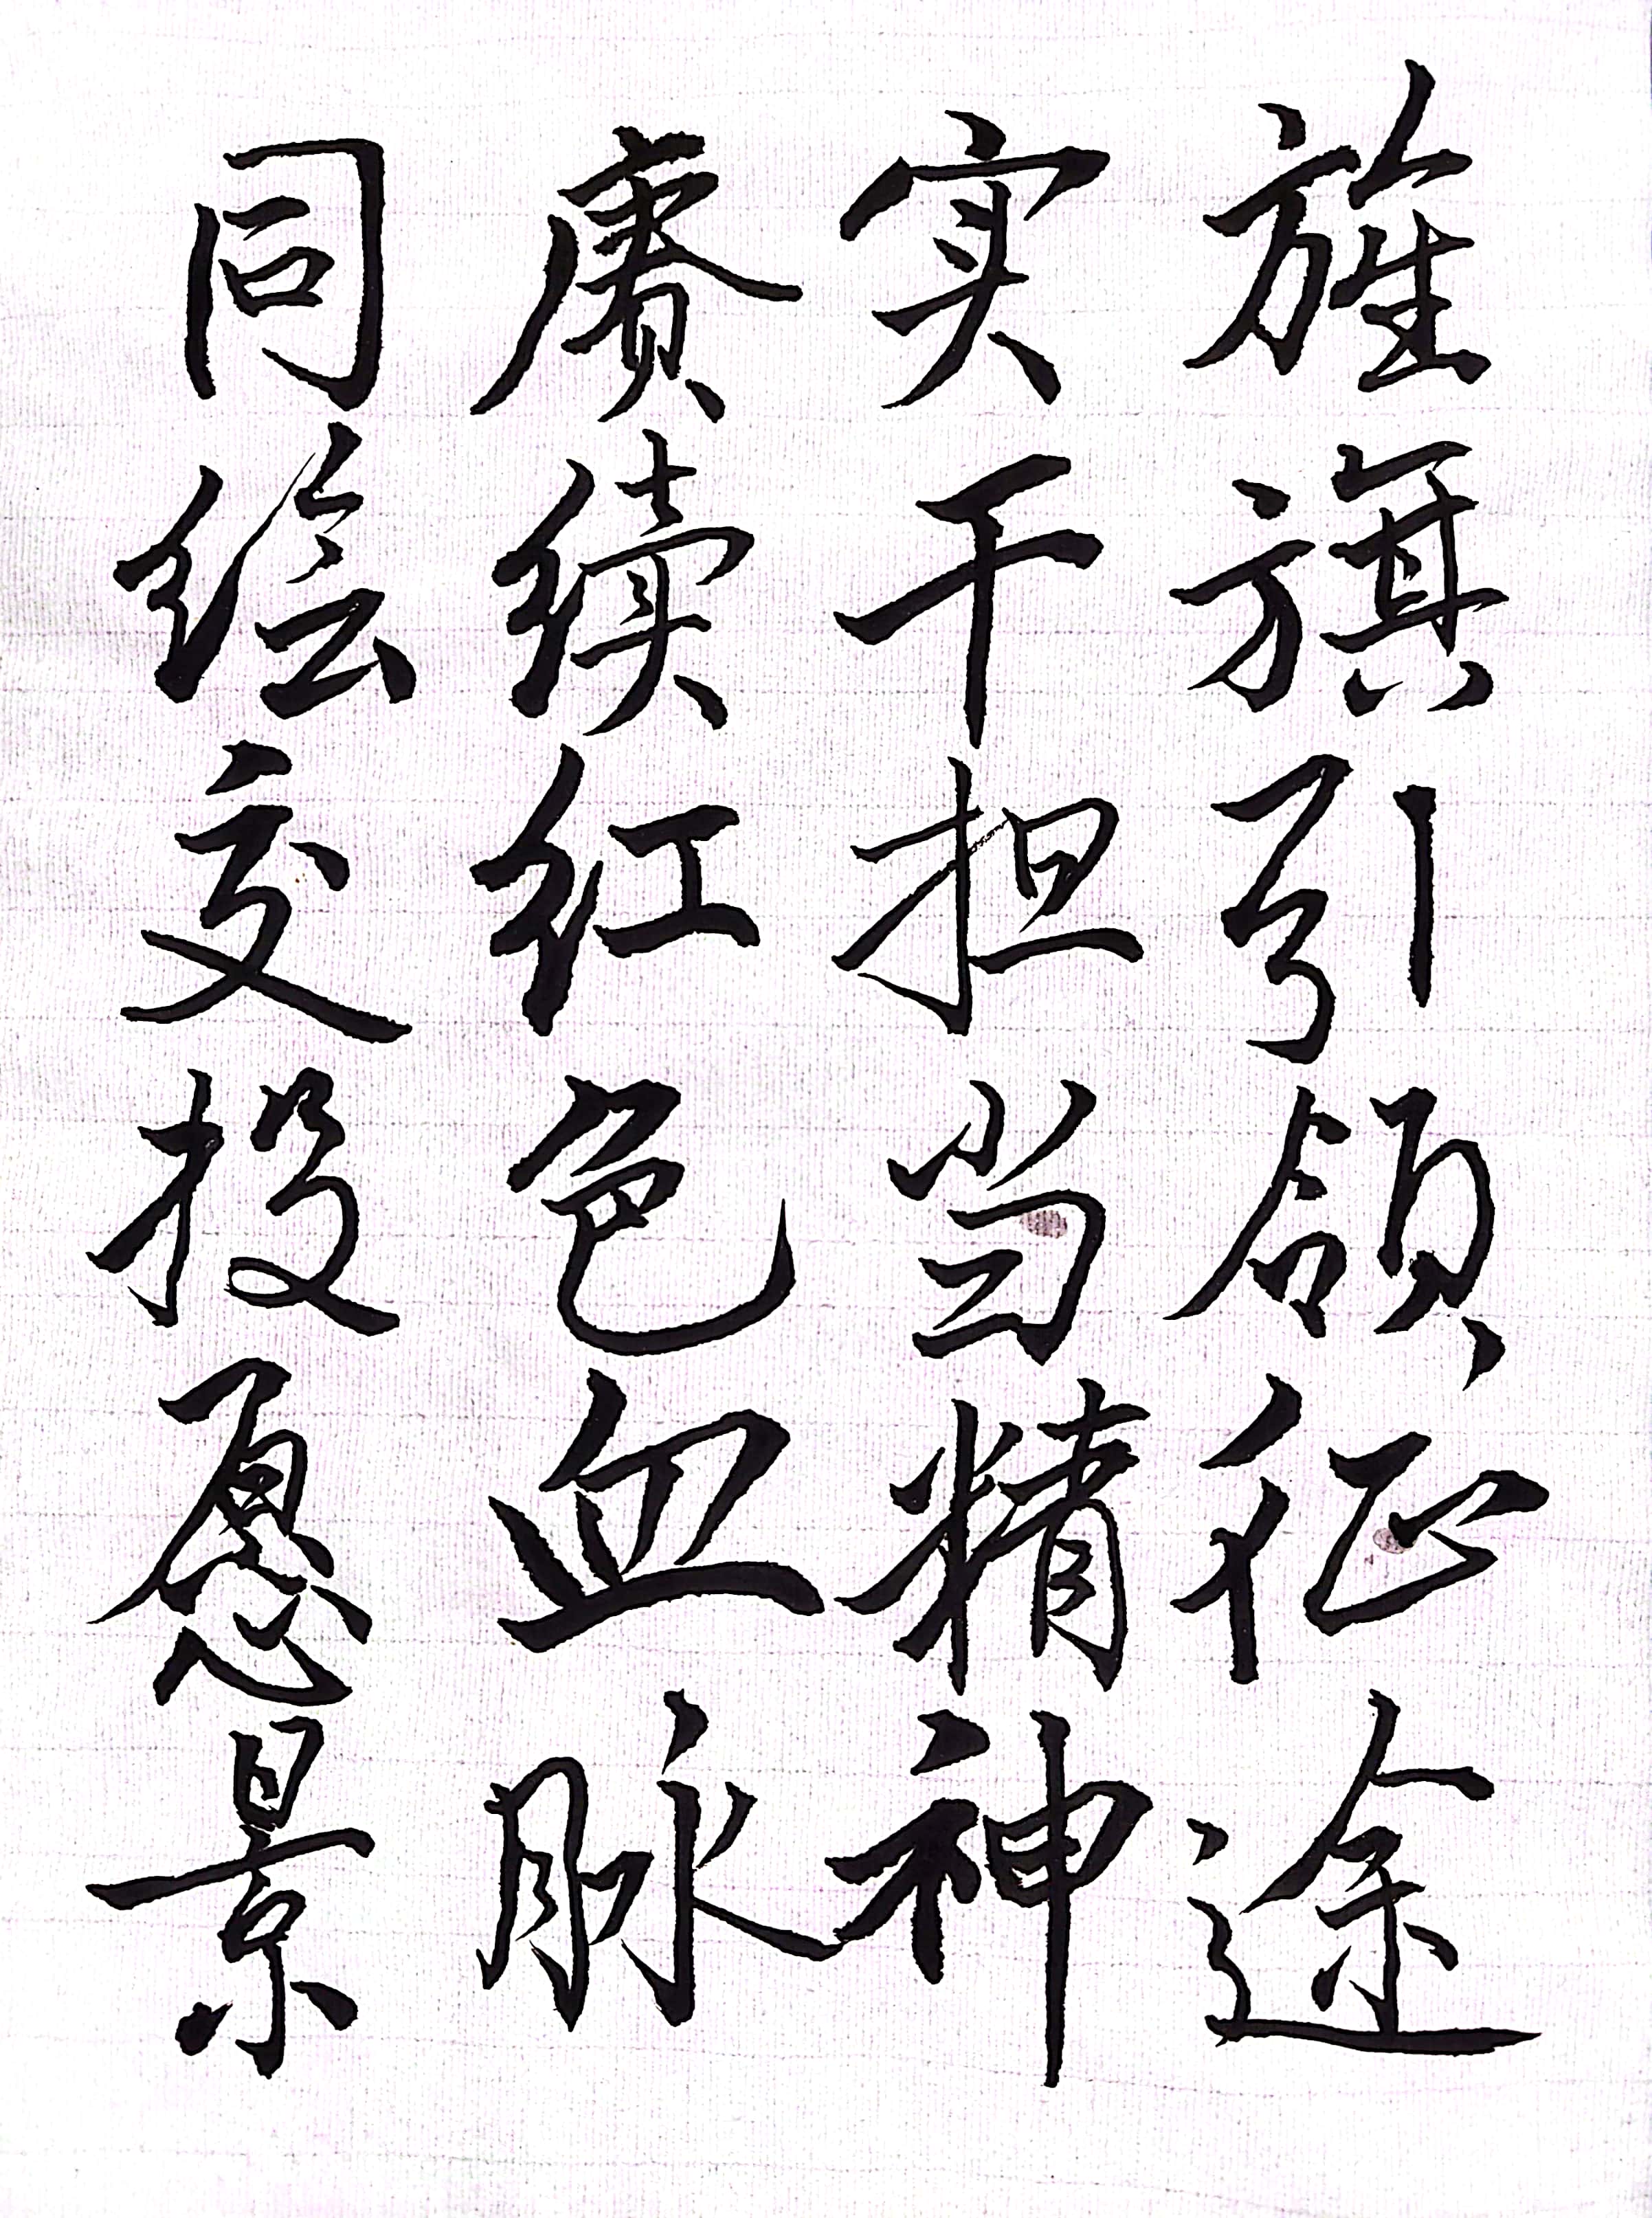 旌旗引领征途
实干担当精神
赓续红色血脉
同绘交投愿景